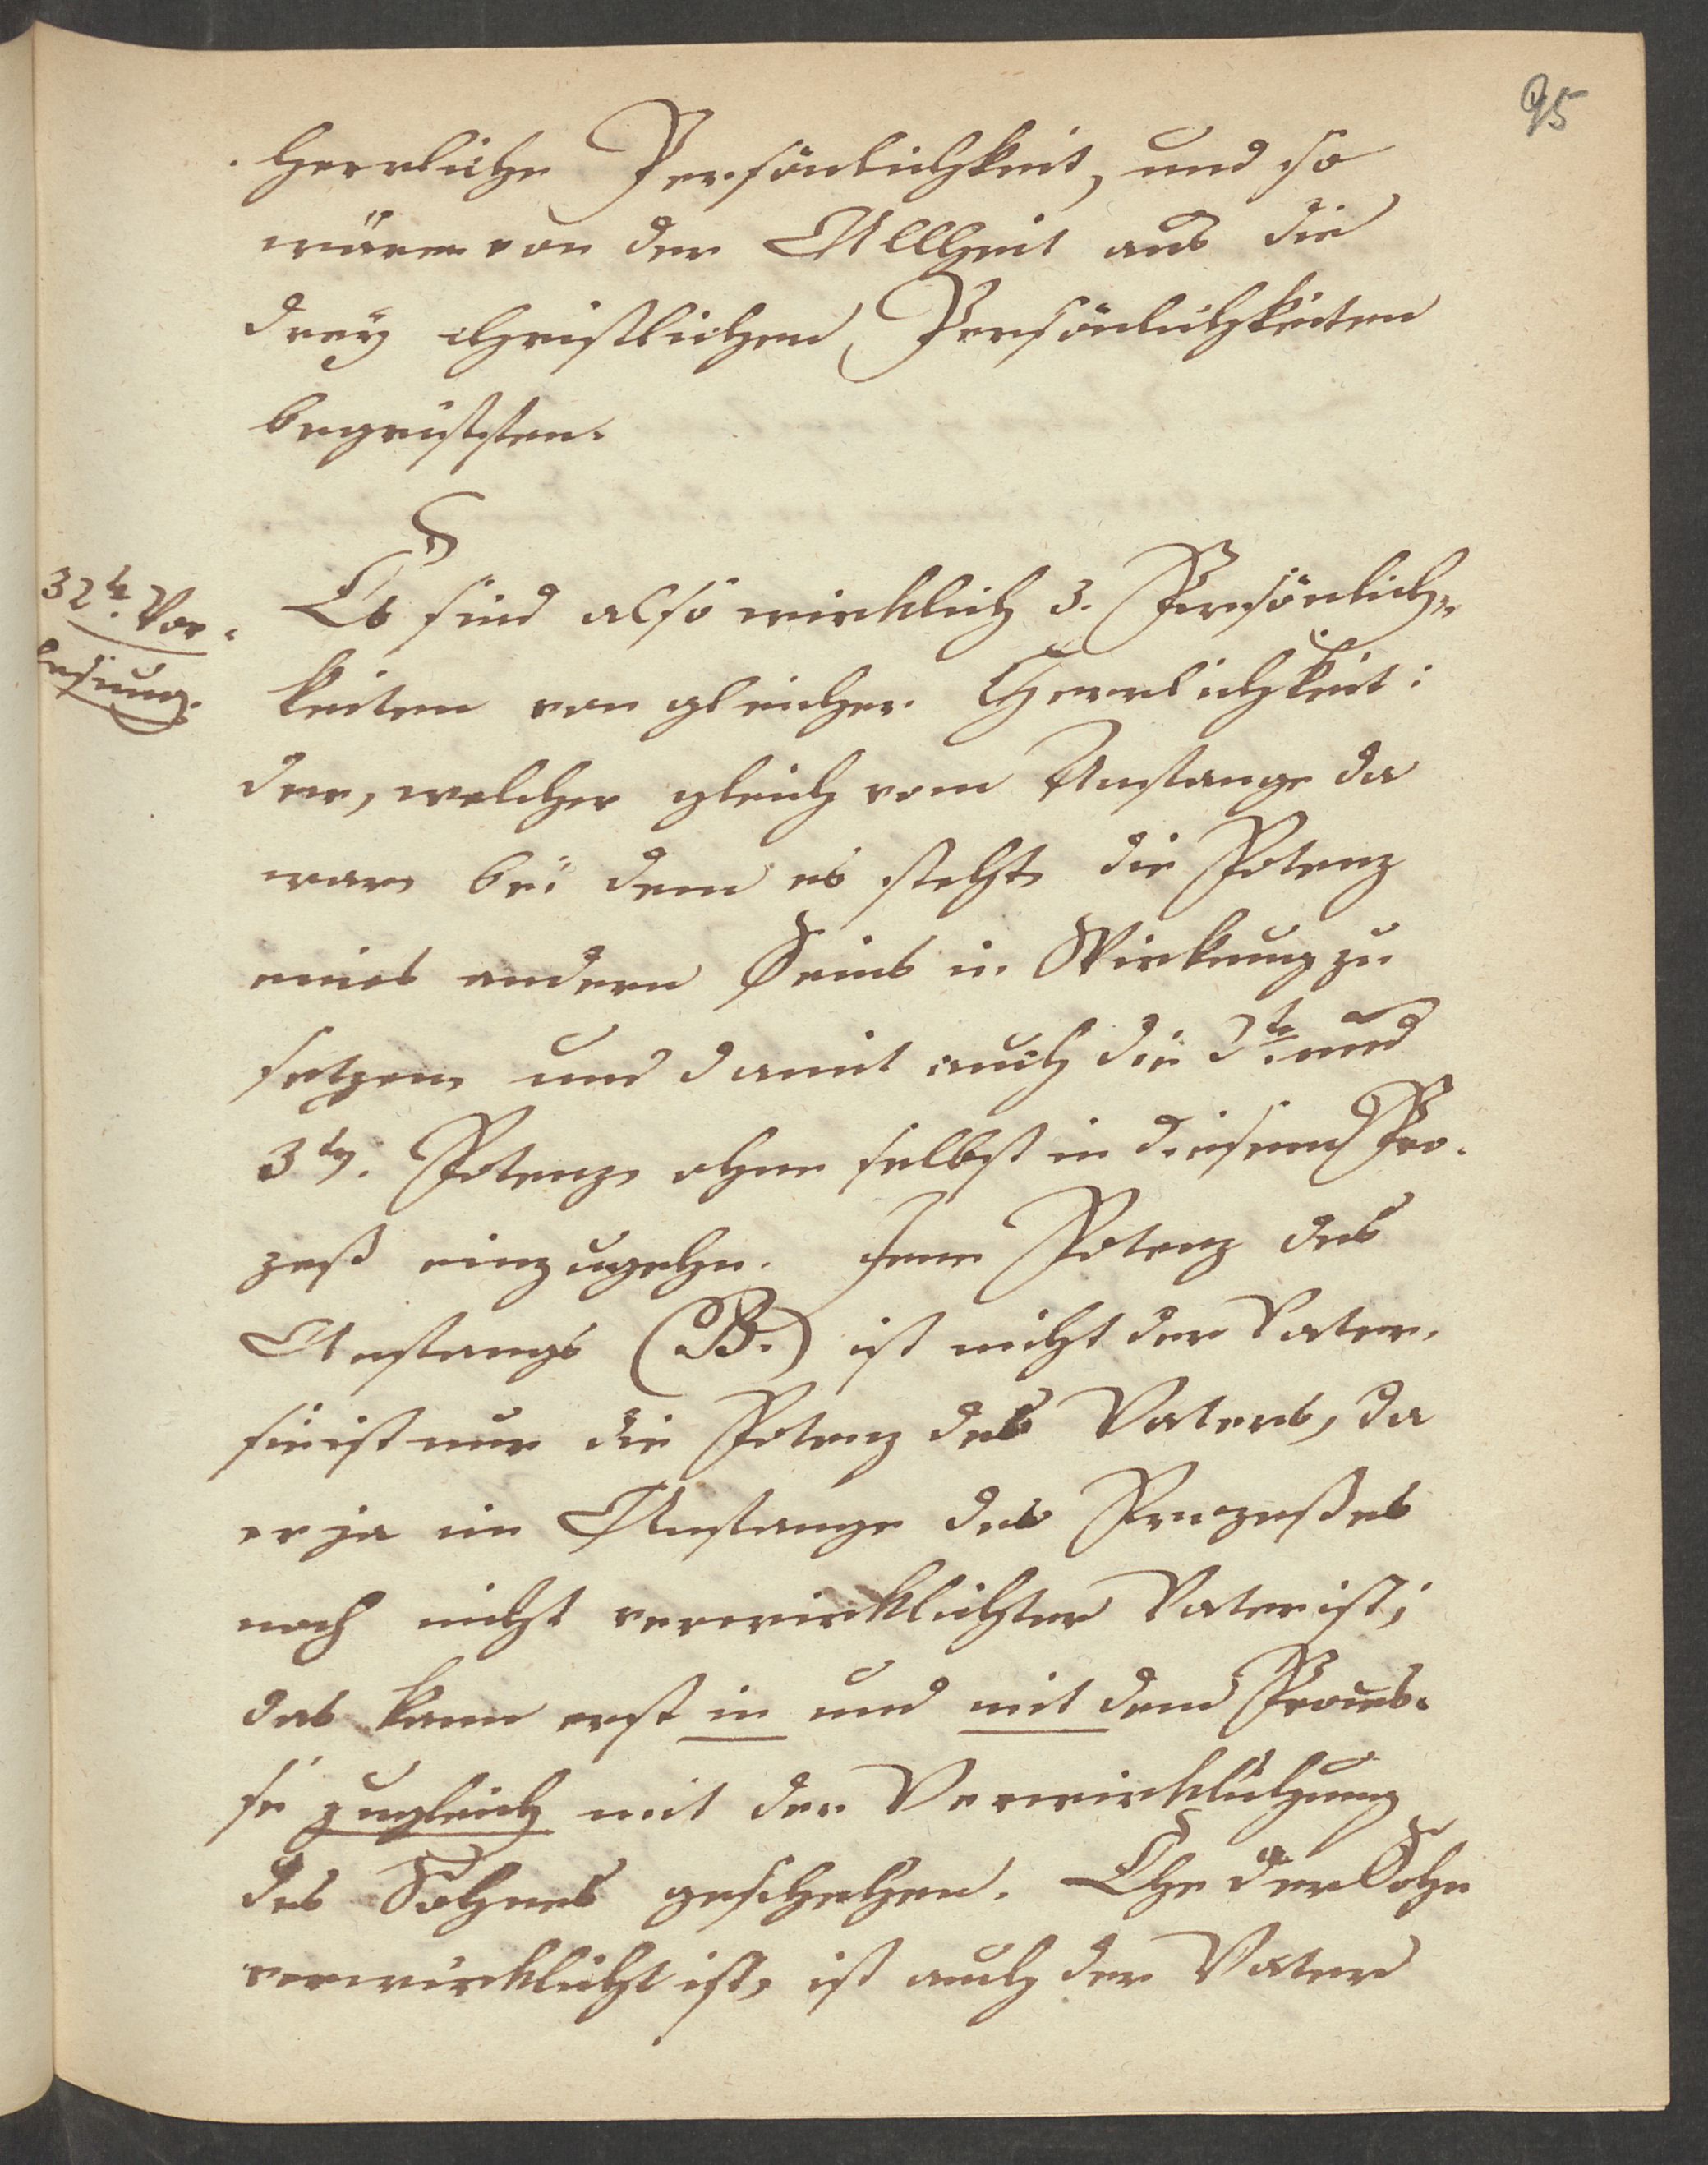 95
herrliche Persönlichkeit, und so
wären von der Allheit aus die
drey christlichen Persönlichkeiten
begriffen.
32te. Vor-
lesung.
Es sind also wirklich 3. Persönlich-
keiten von gleicher Herrlichkeit:
der, welcher gleich vom Anfange da
war, bei dem es steht, die Potenz
eines andern Seins in Wirkung zu
setzen, und damit auch die 2te. und
3te. Potenz, ohne selbst in diesen Pro-
zeß einzugehn. Jene Potenz des
Anfangs (B.) ist nicht der Vater,
sie ist nur die Potenz des Vaters, da
er ja im Anfange des Prozeßes
noch nicht verwirklichter Vater ist;
das kann erst in und mit dem Proces-
se zugleich mit der Verwirklichung
des Sohnes geschehen. Ehe der Sohn
verwirklicht ist, ist auch der Vater